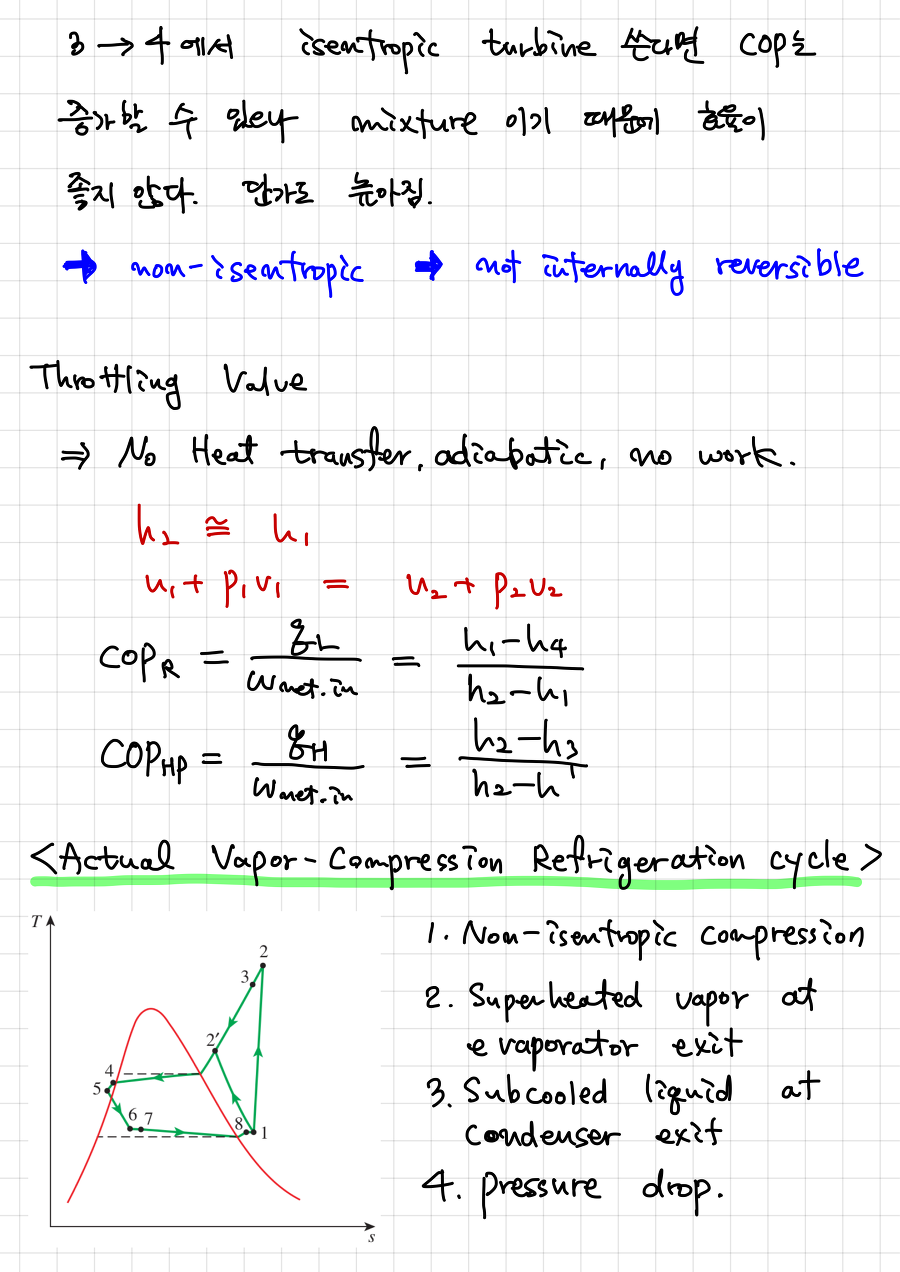 3 → 4 에서 isentropic turbine 쓴다면 COP는
증가할 수 있으나 mixture 이기 때문에 효율이
좋지 않다. 단가도 높아짐.
➡ non-isentropic ➡ not internally reversible
Throttling Value
⇒ No Heat transfer, adiabatic, no work.
h₂ ≅ h₁
u₁ + p₁v₁ = u₂ + p₂v₂
COP_R = q_L / w_net.in = (h₁-h₄) / (h₂-h₁)
COP_HP = q_H / w_net.in = (h₂-h₃) / (h₂-h₁)
<Actual Vapor-Compression Refrigeration cycle>
T
2
3
2′
4
5
6
7
8
1
s
1. Non-isentropic compression
2. Superheated vapor at
evaporator exit
3. Subcooled liquid at
condenser exit
4. pressure drop.